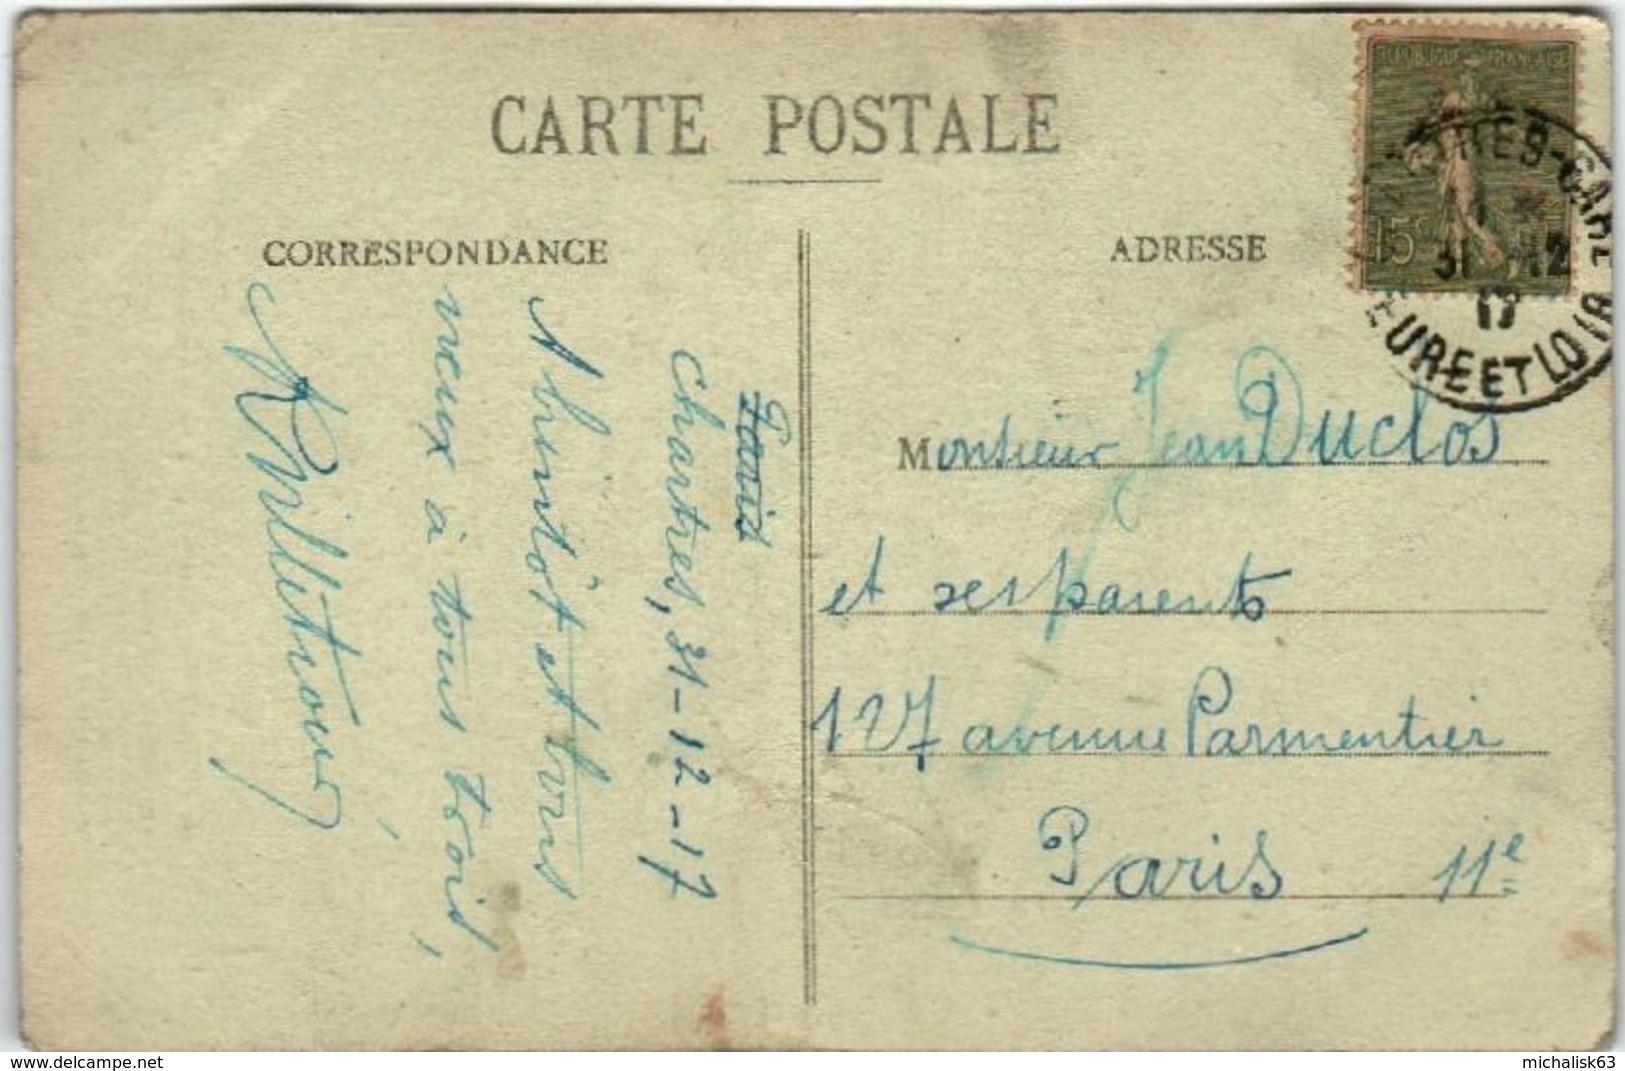 CARTE POSTALE
CORRESPONDANCE
ADRESSE
REPUBLIQUE FRANÇAISE
15c
TRES-GARE
31 -12
17
EURE ET LOIR
Paris
Chartres, 31-12-17
A bientôt et bons
vœux à tous trois,
Monsieur Jean Duclos
et ses parents
127 avenue Parmentier
Paris 11e
www.delcampe.net
michalisk63